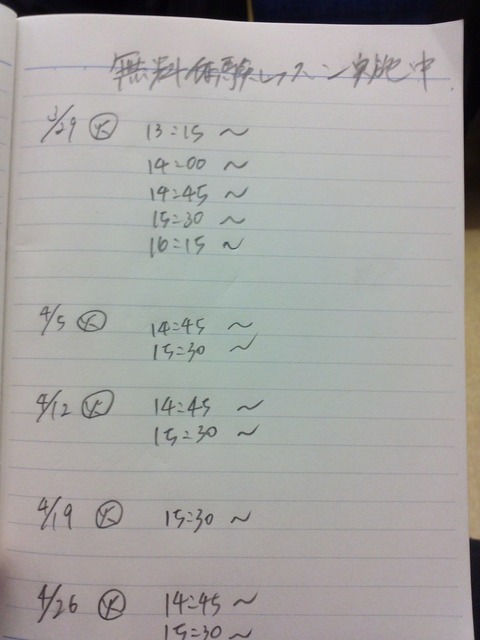 無料体験レッスン実施中.
3/29 火 13:15 ~
14:00 ~
14:45 ~
15:30 ~
16:15 ~
4/5 火 14:45 ~
15:30 ~
4/12 火 14:45 ~
15:30 ~
4/19 火 15:30 ~
4/26 火 14:45 ~
15:30 ~